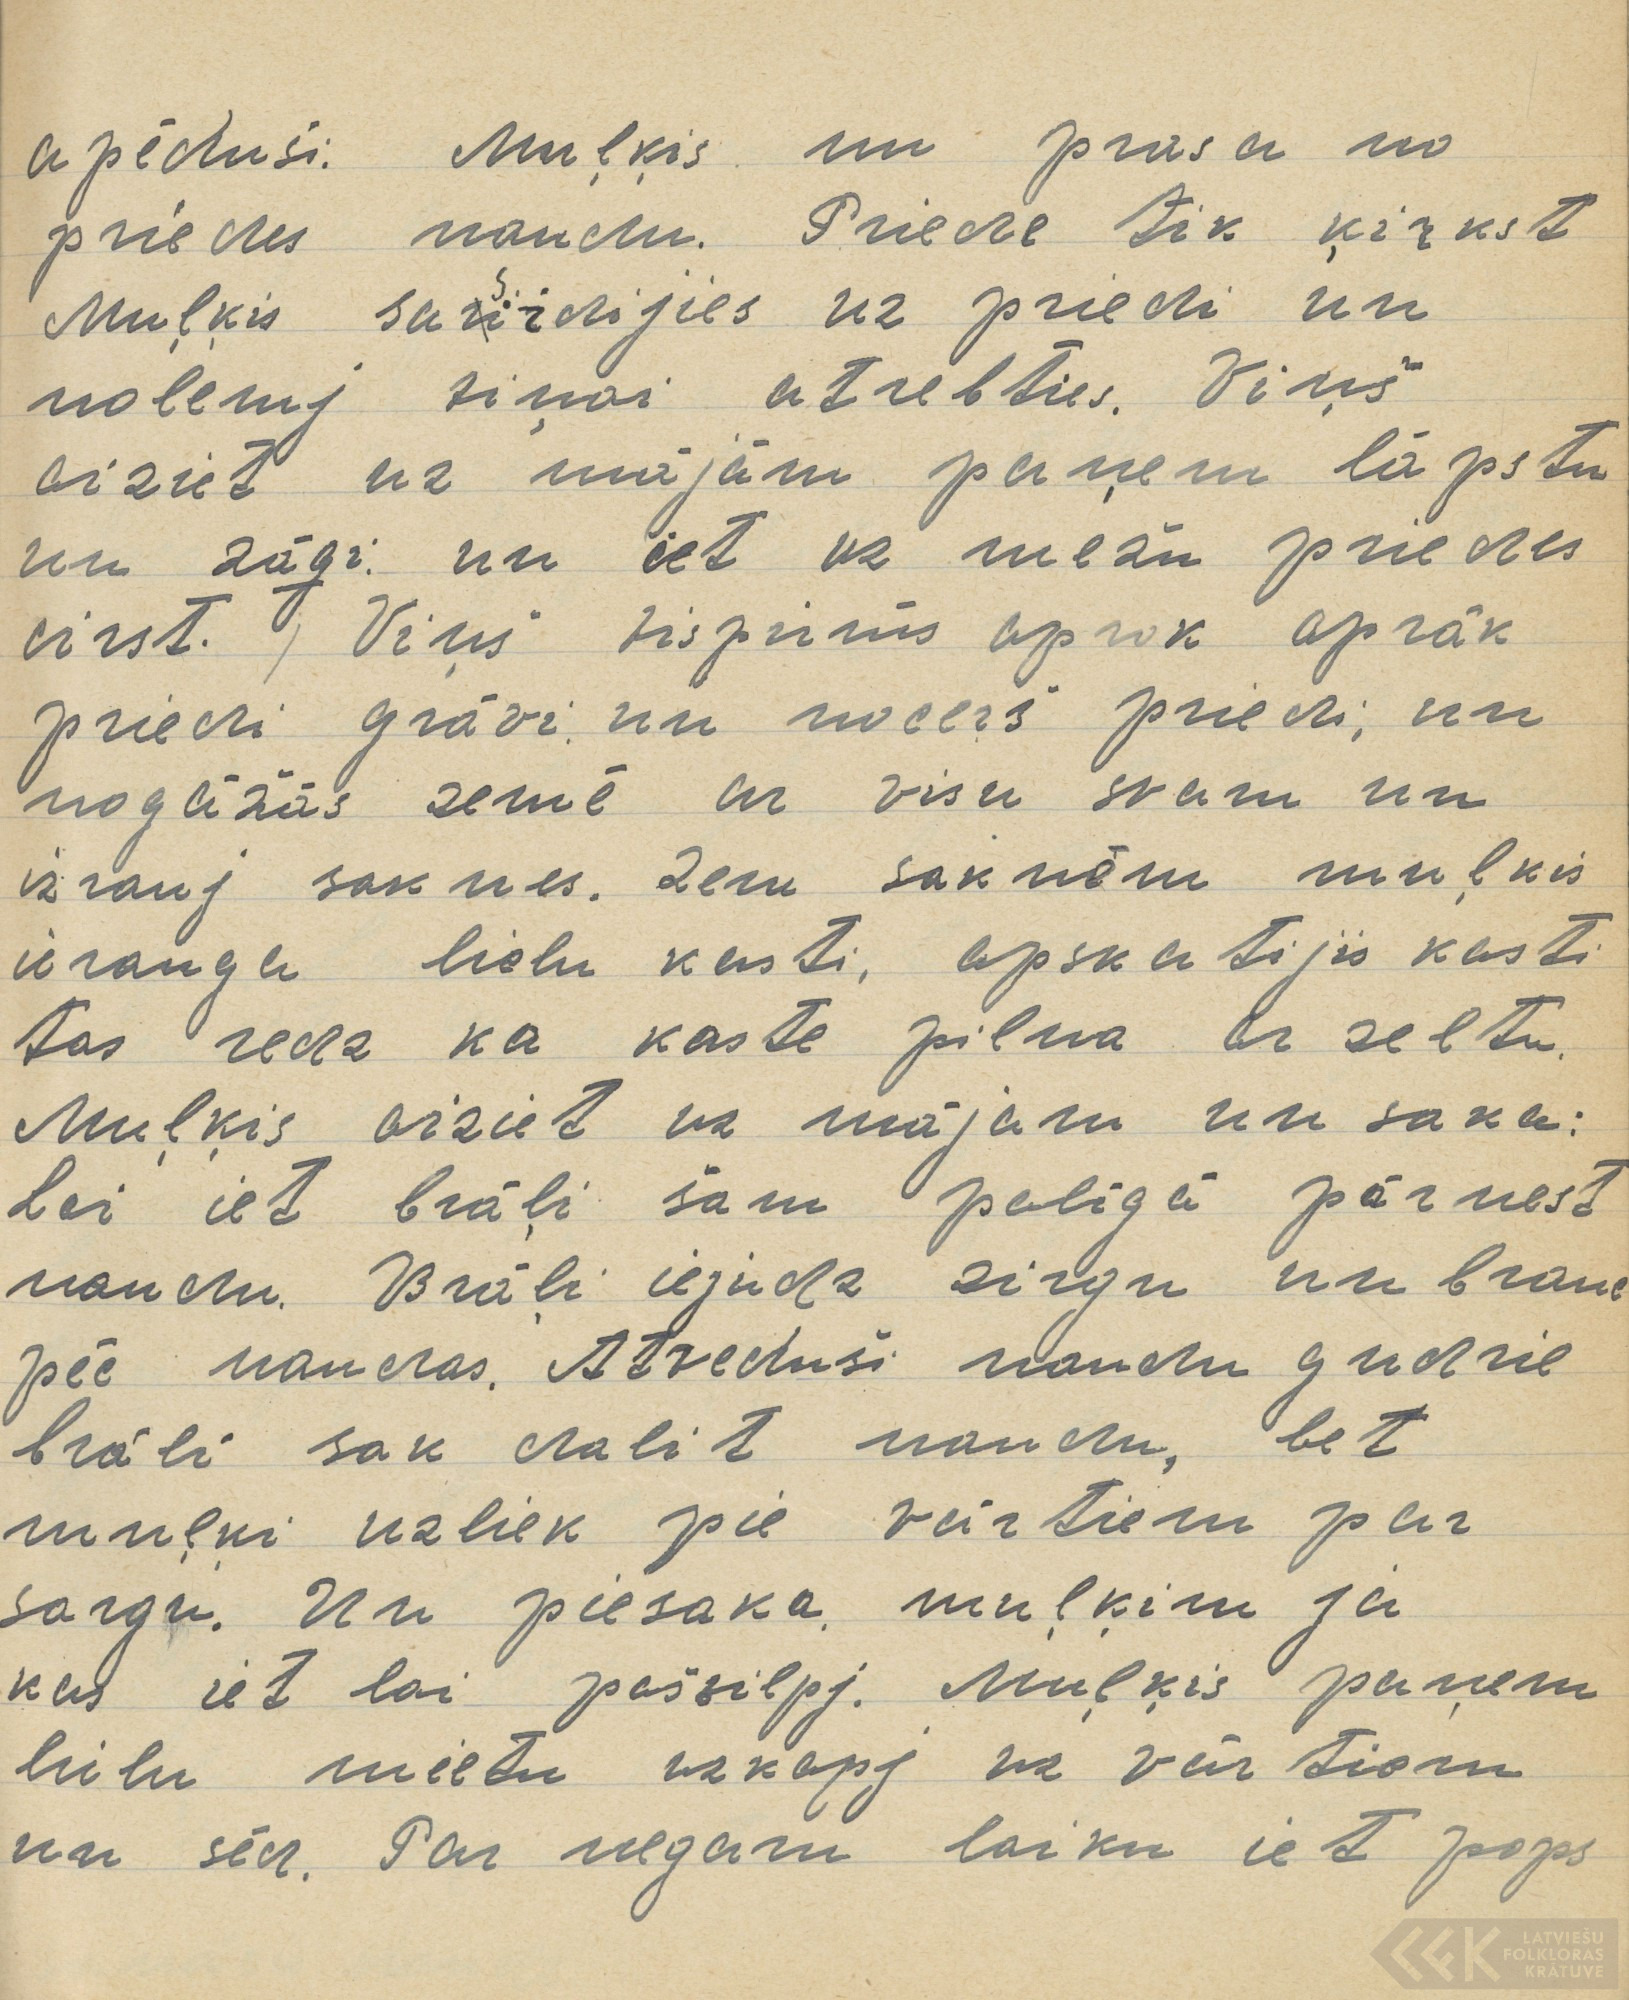 apēduši. Muļķis un prasa no
priedes naudu. Priede tik ķirkst
Muļķis sasirdijies uz priedi un
nolemj viņai atrebties. Viņš
aiziet uz mājām paņem lāpstu
un zāģi. un iet uz mežu priedes
cirst. Viņš vispirms aprok aprāk
priedi grāvi, un nocērš priedi, un
nogāžās zemē ar visu svam un
izrauj saknes. Zem saknēm muļkis
ierauga lielu kasti, apskatijis kasti
tas redz ka kaste pilna ar zeltu.
Muļķis aiziet uz mājam un saka:
Lai iet brāļi šam paligā pārnest
naudu. Brāļi iejudz zirgu un brauc
pēc naudas. Atveduši naudu gudrie
brāli sak dalit naudu, bet
muļķi uzliek pie vārtiem par
sargu. Un piesaka, muļķim ja
kas iet lai pašvilpj. Muļķis paņem
lielu mietu uzkapj uz vārtiem
un sēd. Par negaru laiku iet pops
LATVIEŠU
FOLKLORAS
KRĀTUVE